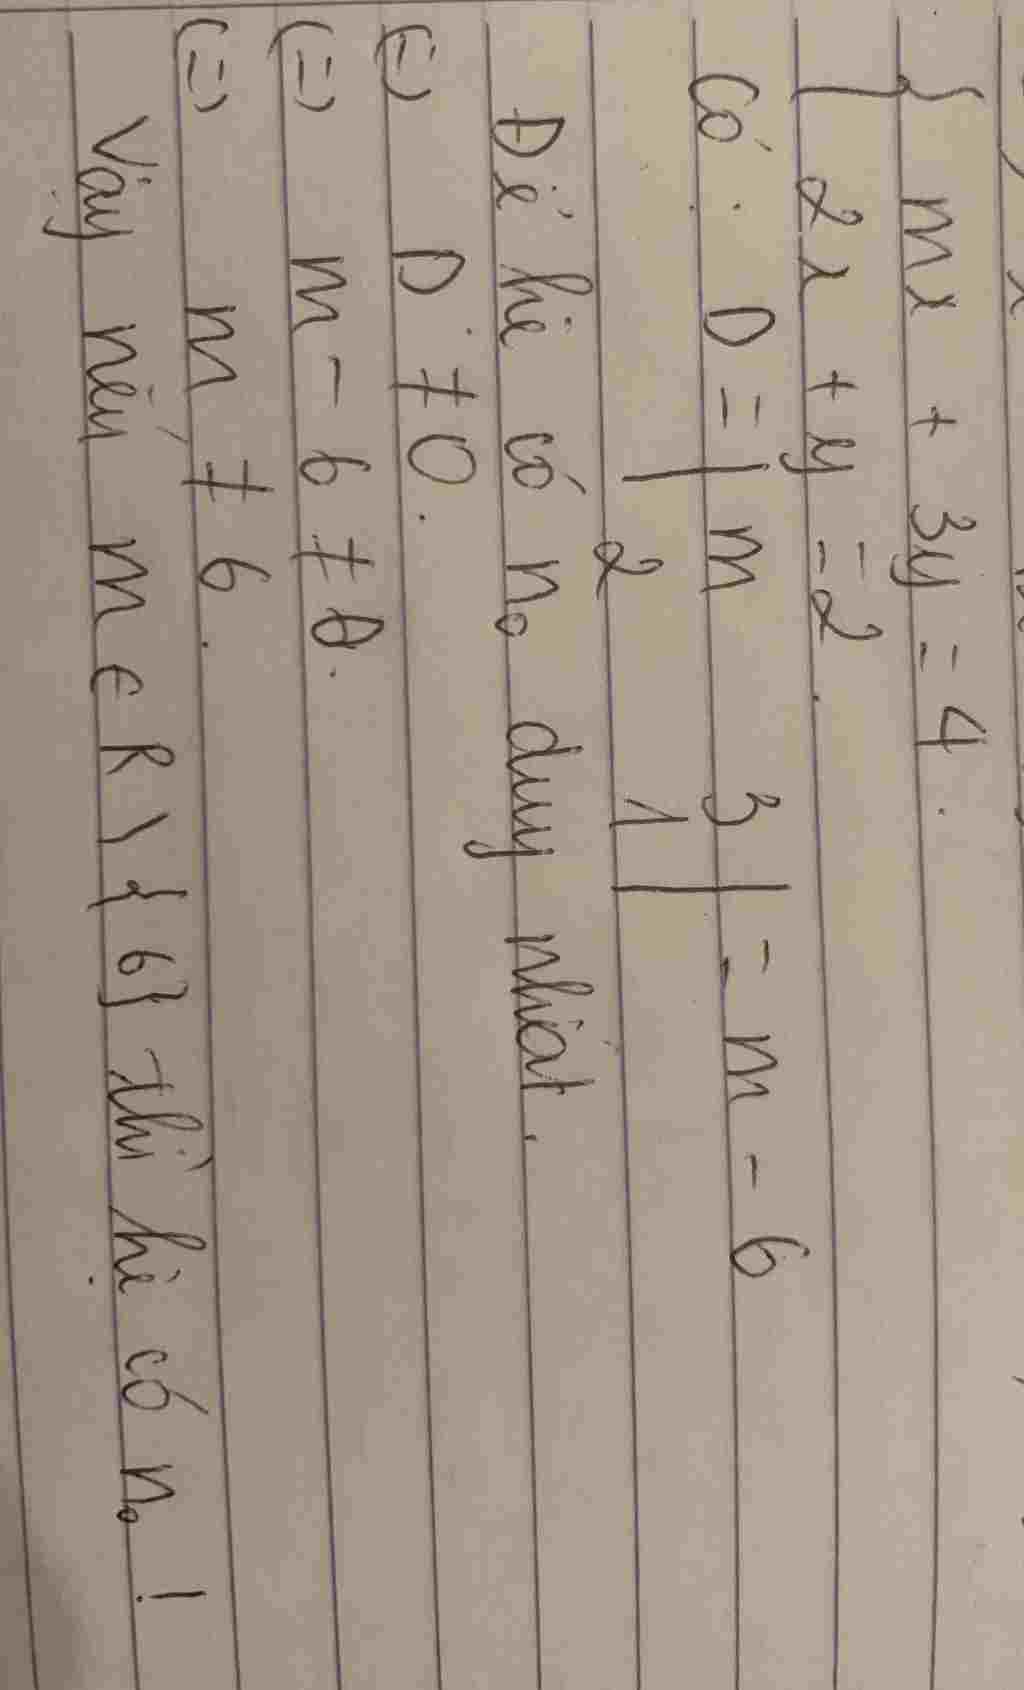 { mx + 3y = 4.
{ 2x + y = 2.
Có: D = | m 3 | = m - 6
| 2 1 |
Để hệ có n₀ duy nhất.
(=) D ≠ 0.
(=) m - 6 ≠ 0.
(=) m ≠ 6.
Vậy nếu m ∈ R \ {6} thì hệ có n₀ !